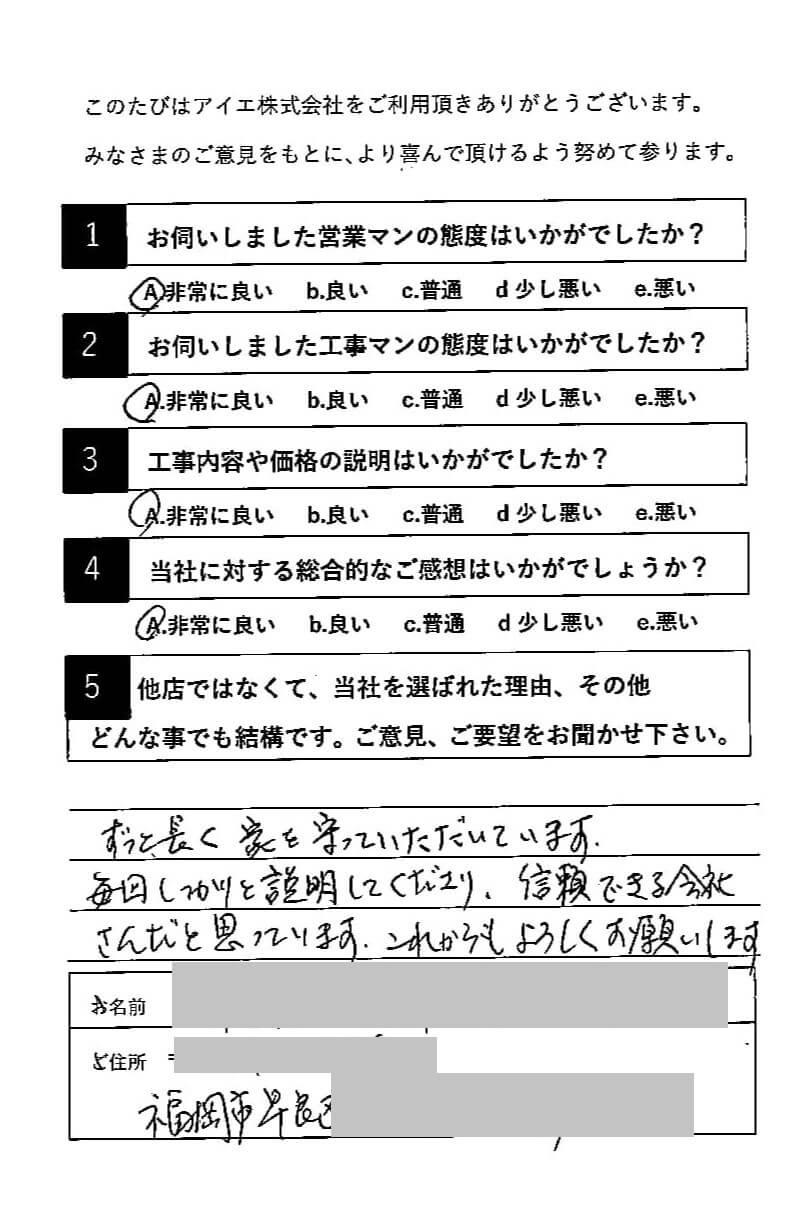 このたびはアイエ株式会社をご利用頂きありがとうございます。
みなさまのご意見をもとに、より喜んで頂けるよう努めて参ります。
1 お伺いしました営業マンの態度はいかがでしたか？
A.非常に良い b.良い c.普通 d 少し悪い e.悪い
2 お伺いしました工事マンの態度はいかがでしたか？
A.非常に良い b.良い c.普通 d 少し悪い e.悪い
3 工事内容や価格の説明はいかがでしたか？
A.非常に良い b.良い c.普通 d 少し悪い e.悪い
4 当社に対する総合的なご感想はいかがでしょうか？
A.非常に良い b.良い c.普通 d 少し悪い e.悪い
5 他店ではなくて、当社を選ばれた理由、その他
どんな事でも結構です。ご意見、ご要望をお聞かせ下さい。
ずっと、長く 家を守っていただいています。
毎回しっかりと説明してくださり、信頼できる会社
さんだと思っています。これからもよろしくお願いします
お名前
ご住所 〒
福岡市早良区